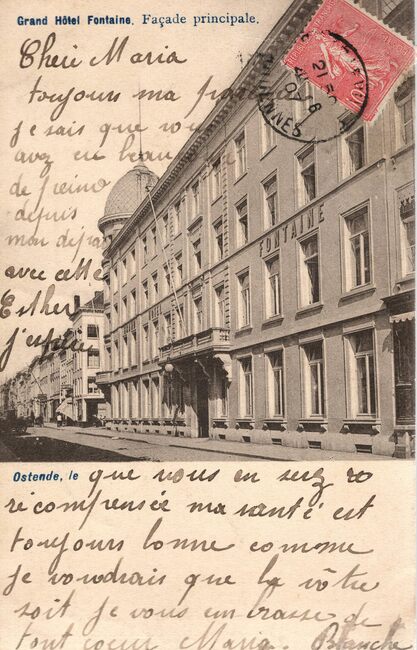 Grand Hôtel Fontaine. Façade principale.
Cheie Maria
toujours ma
je sais que vous
avez eu beau
de peine
depuis
mon départ
avec cette
Esther
j'espère
FONTAINE
21
ARDENNES
Ostende, le
que vous en serez re
récompensée ma santé est
toujours bonne comme
je voudrais que la vôtre
soit je vous embrasse de
tout coeur Maria. Blanche